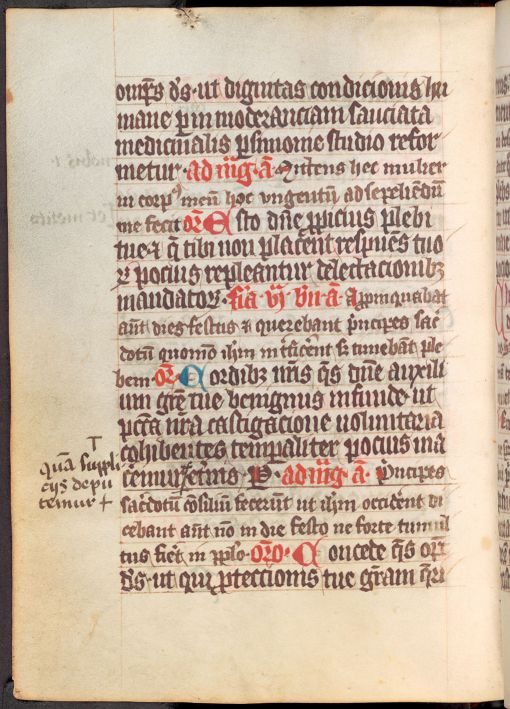 omps ds · ut dignitas condicionis hu
mane p inmoderanciam sauciata
medicinalis psimonie studio refor
metur · ad mg · a · Mittens hec mulier
in corp9 meu hoc vngentu ad sepeliedu
me fecit or Esto dne ppicius plebi
tue · et q tibi non placent respues tuo
r pocius repleantur delectacionibz
mandator · fia · vj · vn · a · Appinquabat
aut dies festus et querebant pncipes sac
dotu quomo ihm intficent s timebant ple
bem · or · Cordibz nris qs dne auxili
um gre tue benignus infunde ut
pcca nra castigacione voluntaria
cohibentes tempaliter pocius ma
cemur eternis P · ad mg · a · Pncipes
sacdotu consiliu fecerut ut ihm occident di
cebant aut no in die festo ne forte tumul
tus fiet in pplo · oro · Concede qs omps
ds · ut qui ptectionis tue gram qri
qua suppli
cijs depu
temur +